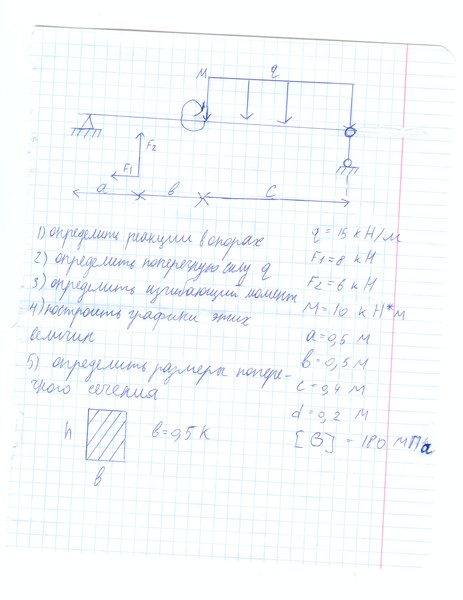 M q
F2
F1
a в c
1) определить реакции в опорах
2) определить поперечную силу q
3) определить изгибающий момент
4) построить графики этих
величин
5) определить размеры попере-
чного сечения
q = 15 кН/м
F1 = 8 кН
F2 = 6 кН
M = 10 кН*м
a = 0,5 м
в = 0,5 м
c = 0,4 м
d = 0,2 м
[B] = 180 МПа
h в = 0,5 K
в